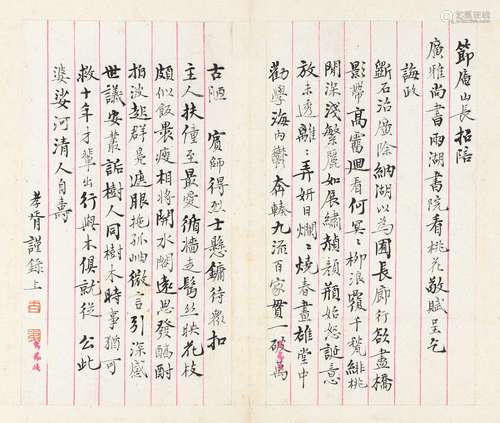 節庵山長招陪
廣雅尚書兩湖書院看桃花敬賦呈乞
誨政
斷石治廣除納湖以為園長廊行欲盡橋
影帶高霞迴看何冥冥柳浪窺千甃緋桃
開深淺繁麗如展繡頳顏頩始怒誕意
放未透離弄妍日爛爛燒春晝雄堂中
勸學海內鬱奔輳九流百家貫一破萬
古陋賓師得烈士懸鏞待眾扣
主人扶僮至最愛循牆走鬚絲映花枝
頗似飯農瘦相將開水閣遠思發酩酎
拍波起群鳧遮眼挹孤岫微言引深感
世議安叢詬樹人同樹木時事猶可
救十年才輩出行與木俱就從公此
婆娑河清人自壽
孝胥謹錄上